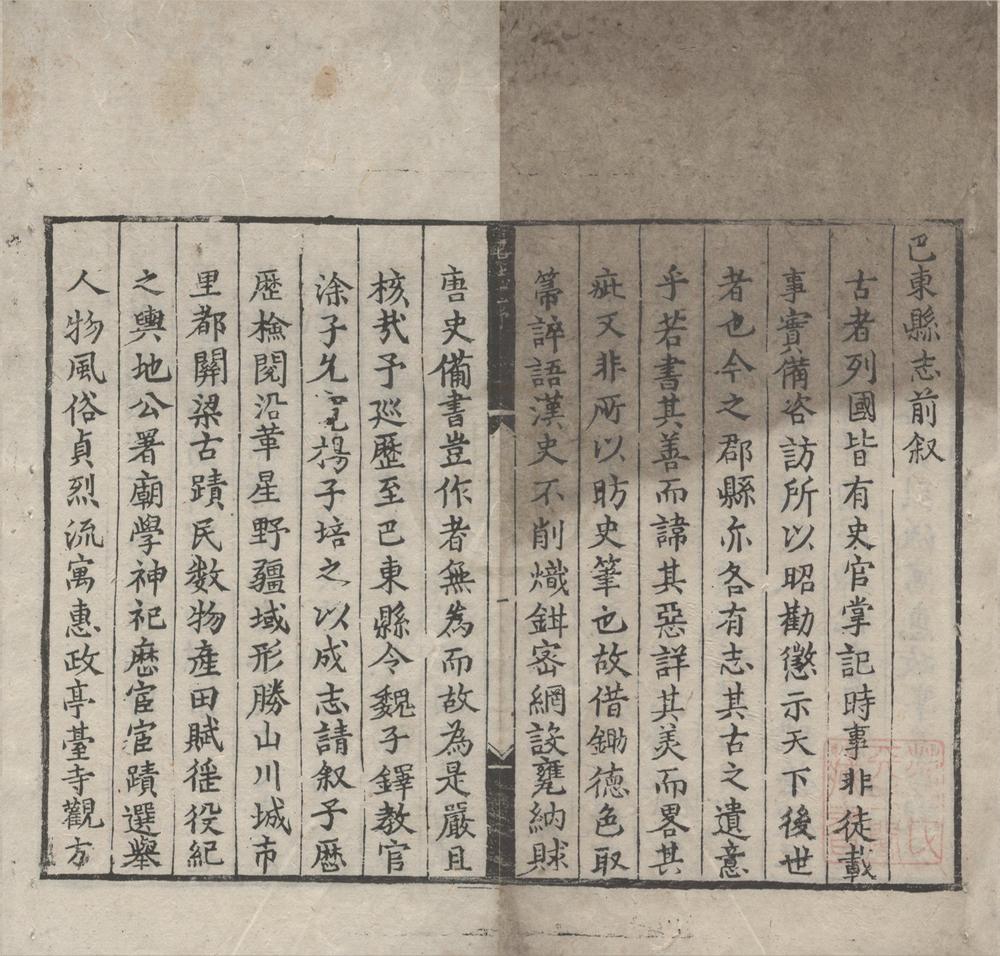 巴東縣志前叙
古者列國皆有史官掌記時事非徒載
事實備咨訪所以昭勸懲示天下後世
者也今之郡縣亦各有志其古之遺意
乎若書其善而諱其惡詳其美而畧其
疵又非所以昉史筆也故借鋤德色取
箒誶語漢史不削熾鉗密網設甕納賕
唐史備書豈作者無為而故為是嚴且
核㢤予廵歷至巴東縣令魏子鐸教官
涂子允楊子培之以成志請叙子歴
歷檢閱沿革星野疆域形勝山川城市
里都關梁古蹟民数物產田賦徭役紀
之輿地公署廟學神祀歴宦宦蹟選舉
人物風俗貞烈流寓惠政亭臺寺觀方